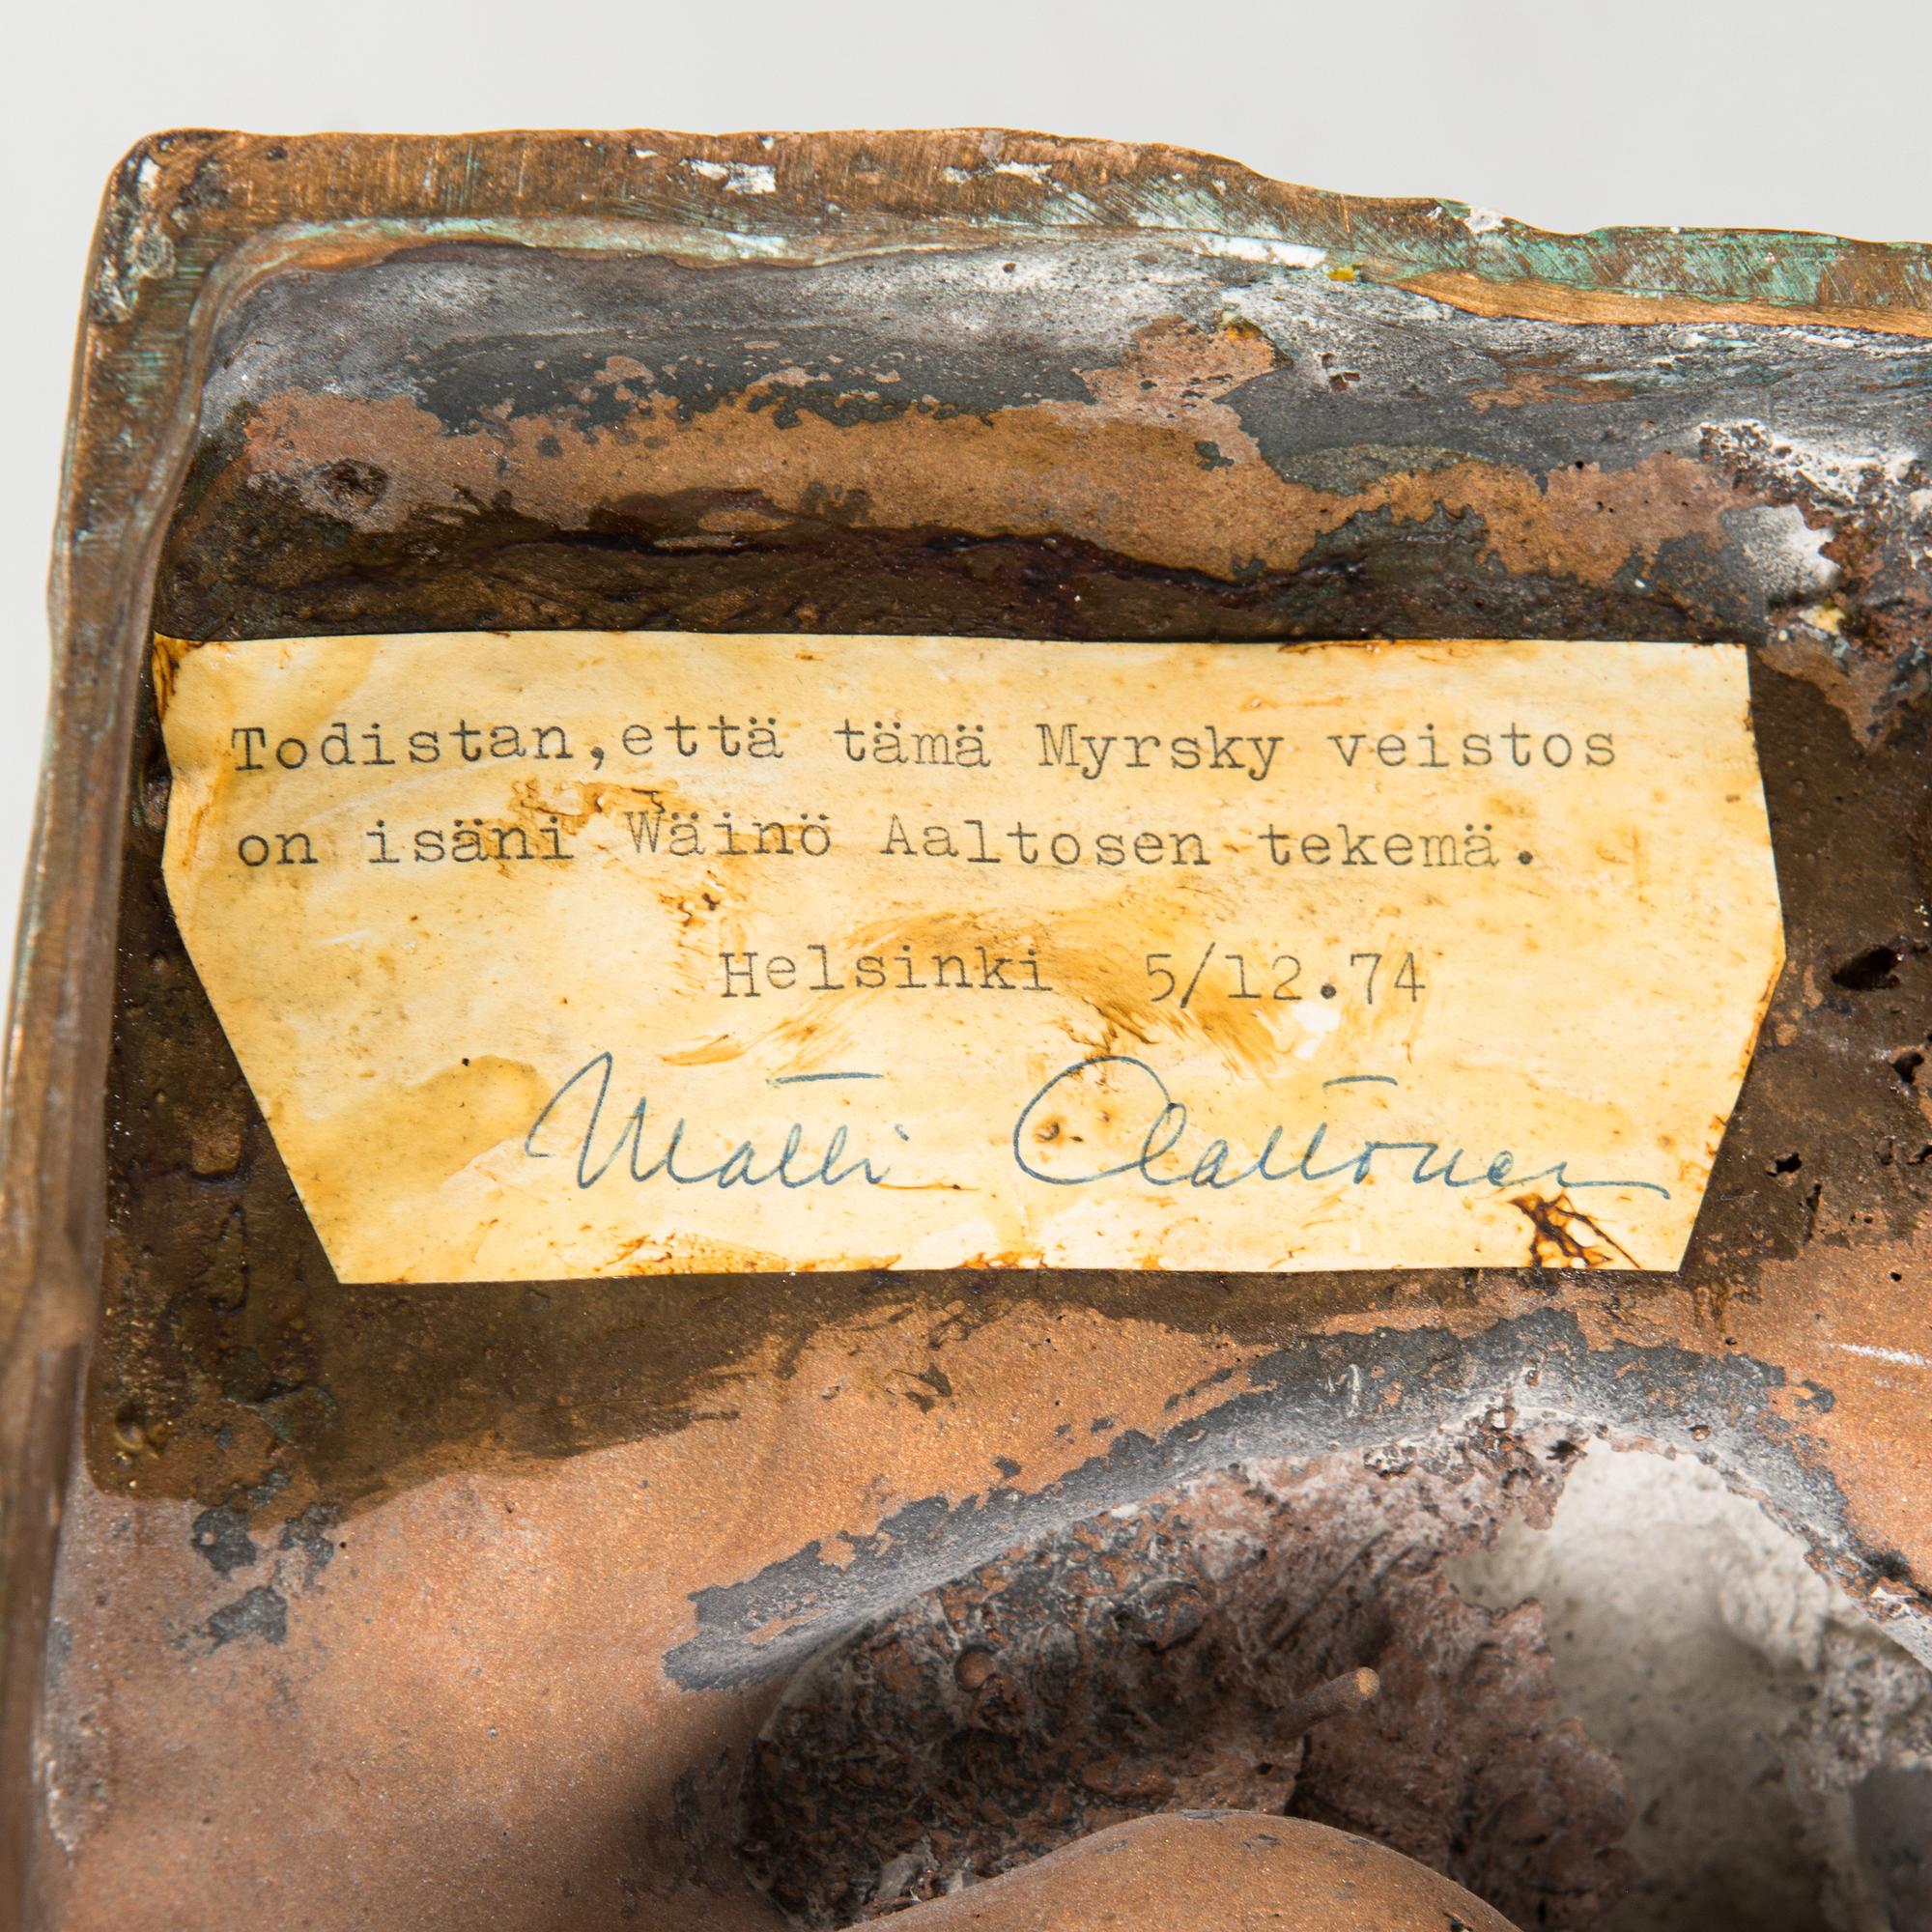 Todistan,että tämä Myrsky veistos
on isäni Wäinö Aaltosen tekemä.
Helsinki 5/12.74
Matti Aaltonen